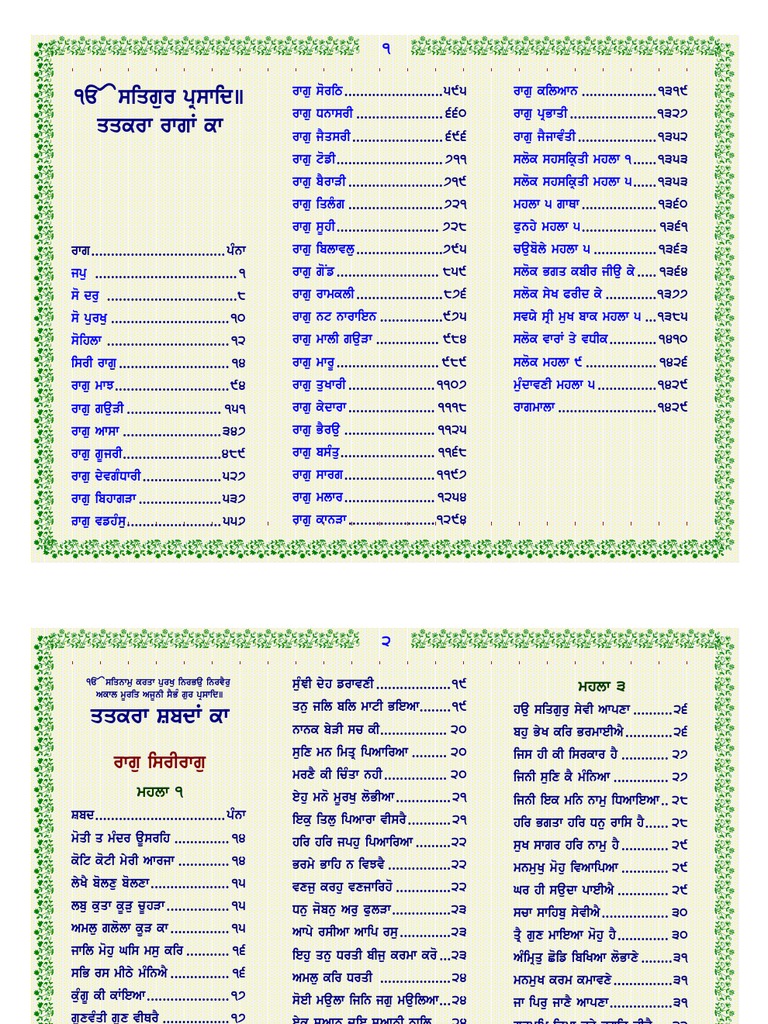 ੧
ੴ ਸਤਿਗੁਰ ਪ੍ਰਸਾਦਿ॥
ਤਤਕਰਾ ਰਾਗਾਂ ਕਾ
ਰਾਗ.................................ਪੰਨਾ
ਜਪੁ ...................................੧
ਸੋ ਦਰੁ ................................੮
ਸੋ ਪੁਰਖੁ .............................੧੦
ਸੋਹਿਲਾ ..............................੧੨
ਸਿਰੀ ਰਾਗੁ ............................੧੪
ਰਾਗੁ ਮਾਝ............................੯੪
ਰਾਗੁ ਗਉੜੀ ........................ ੧੫੧
ਰਾਗੁ ਆਸਾ ........................੩੪੭
ਰਾਗੁ ਗੂਜਰੀ........................੪੮੯
ਰਾਗੁ ਦੇਵਗੰਧਾਰੀ....................੫੨੭
ਰਾਗੁ ਬਿਹਾਗੜਾ ....................੫੩੭
ਰਾਗੁ ਵਡਹੰਸੁ.......................੫੫੭
ਰਾਗੁ ਸੋਰਠਿ........................੫੯੫
ਰਾਗੁ ਧਨਾਸਰੀ .....................੬੬੦
ਰਾਗੁ ਜੈਤਸਰੀ ......................੬੯੬
ਰਾਗੁ ਟੋਡੀ..........................੭੧੧
ਰਾਗੁ ਬੈਰਾੜੀ .......................੭੧੯
ਰਾਗੁ ਤਿਲੰਗ .......................੭੨੧
ਰਾਗੁ ਸੂਹੀ ..........................੭੨੮
ਰਾਗੁ ਬਿਲਾਵਲੁ .....................੭੯੫
ਰਾਗੁ ਗੋਂਡ ..........................੮੫੯
ਰਾਗੁ ਰਾਮਕਲੀ .....................੮੭੬
ਰਾਗੁ ਨਟ ਨਾਰਾਇਨ ................੯੭੫
ਰਾਗੁ ਮਾਲੀ ਗਉੜਾ .................੯੮੪
ਰਾਗੁ ਮਾਰੂ ..........................੯੮੯
ਰਾਗੁ ਤੁਖਾਰੀ ......................੧੧੦੭
ਰਾਗੁ ਕੇਦਾਰਾ ......................੧੧੧੮
ਰਾਗੁ ਭੈਰਉ .......................੧੧੨੫
ਰਾਗੁ ਬਸੰਤੁ........................੧੧੬੮
ਰਾਗੁ ਸਾਰਗ .......................੧੧੯੭
ਰਾਗੁ ਮਲਾਰ.......................੧੨੫੪
ਰਾਗੁ ਕਾਨੜਾ ......................੧੨੯੪
ਰਾਗੁ ਕਲਿਆਨ ....................੧੩੧੯
ਰਾਗੁ ਪ੍ਰਭਾਤੀ ......................੧੩੨੭
ਰਾਗੁ ਜੈਜਾਵੰਤੀ ....................੧੩੫੨
ਸਲੋਕ ਸਹਸਕ੍ਰਿਤੀ ਮਹਲਾ ੧......੧੩੫੩
ਸਲੋਕ ਸਹਸਕ੍ਰਿਤੀ ਮਹਲਾ ੫......੧੩੫੩
ਮਹਲਾ ੫ ਗਾਥਾ ...................੧੩੬੦
ਫੁਨਹੇ ਮਹਲਾ ੫....................੧੩੬੧
ਚਉਬੋਲੇ ਮਹਲਾ ੫ ................੧੩੬੩
ਸਲੋਕ ਭਗਤ ਕਬੀਰ ਜੀਉ ਕੇ .....੧੩੬੪
ਸਲੋਕ ਸੇਖ ਫਰੀਦ ਕੇ .............੧੩੭੭
ਸਵਯੇ ਸ੍ਰੀ ਮੁਖ ਬਾਕ ਮਹਲਾ ੫ ...੧੩੮੫
ਸਲੋਕ ਵਾਰਾਂ ਤੇ ਵਧੀਕ............੧੪੧੦
ਸਲੋਕ ਮਹਲਾ ੯ ...................੧੪੨੬
ਮੁੰਦਾਵਣੀ ਮਹਲਾ ੫ ...............੧੪੨੯
ਰਾਗਮਾਲਾ .........................੧੪੨੯
੨
ੴ ਸਤਿਨਾਮੁ ਕਰਤਾ ਪੁਰਖੁ ਨਿਰਭਉ ਨਿਰਵੈਰੁ
ਅਕਾਲ ਮੂਰਤਿ ਅਜੂਨੀ ਸੈਭੰ ਗੁਰ ਪ੍ਰਸਾਦਿ॥
ਤਤਕਰਾ ਸ਼ਬਦਾਂ ਕਾ
ਰਾਗੁ ਸਿਰੀਰਾਗੁ
ਮਹਲਾ ੧
ਸ਼ਬਦ................................ਪੰਨਾ
ਮੋਤੀ ਤ ਮੰਦਰ ਊਸਰਹਿ ..............੧੪
ਕੋਟਿ ਕੋਟੀ ਮੇਰੀ ਆਰਜਾ .............੧੪
ਲੇਖੈ ਬੋਲਣੁ ਬੋਲਣਾ....................੧੫
ਲਬੁ ਕੁਤਾ ਕੂੜੁ ਚੂਹੜਾ.................੧੫
ਅਮਲੁ ਗਲੋਲਾ ਕੂੜ ਕਾ ...............੧੫
ਜਾਲਿ ਮੋਹੁ ਘਸਿ ਮਸੁ ਕਰਿ ...........੧੬
ਸਭਿ ਰਸ ਮੀਠੇ ਮੰਨਿਐ ................੧੬
ਕੁੰਗੂ ਕੀ ਕਾਂਇਆ.....................੧੭
ਗੁਣਵੰਤੀ ਗੁਣ ਵੀਥਰੈ ..................੧੭
ਸੁੰਞੀ ਦੇਹ ਡਰਾਵਣੀ ...................੧੯
ਤਨੁ ਜਲਿ ਬਲਿ ਮਾਟੀ ਭਇਆ........੧੯
ਨਾਨਕ ਬੇੜੀ ਸਚ ਕੀ.................. ੨੦
ਸੁਣਿ ਮਨ ਮਿਤ੍ਰ ਪਿਆਰਿਆ ......... ੨੦
ਮਰਣੈ ਕੀ ਚਿੰਤਾ ਨਹੀ ................ ੨੦
ਏਹੁ ਮਨੋ ਮੂਰਖੁ ਲੋਭੀਆ...............੨੧
ਇਕੁ ਤਿਲੁ ਪਿਆਰਾ ਵੀਸਰੈ...........੨੧
ਹਰਿ ਹਰਿ ਜਪਹੁ ਪਿਆਰਿਆ .........੨੨
ਭਰਮੇ ਭਾਹਿ ਨ ਵਿਝਵੈ ................੨੨
ਵਣਜੁ ਕਰਹੁ ਵਣਜਾਰਿਹੋ ............੨੨
ਧਨੁ ਜੋਬਨੁ ਅਰੁ ਫੁਲੜਾ ..............੨੩
ਆਪੇ ਰਸੀਆ ਆਪਿ ਰਸੁ..............੨੩
ਇਹੁ ਤਨੁ ਧਰਤੀ ਬੀਜੁ ਕਰਮਾ ਕਰੋ ...੨੩
ਅਮਲੁ ਕਰਿ ਧਰਤੀ ...................੨੪
ਸੋਈ ਮਉਲਾ ਜਿਨਿ ਜਗੁ ਮਉਲਿਆ...੨੪
ਏਕੁ ਸੁਆਨੁ ਦੁਇ ਸੁਆਨੀ ਨਾਲਿ.....੨੪
ਮਹਲਾ ੩
ਹਉ ਸਤਿਗੁਰੁ ਸੇਵੀ ਆਪਣਾ ..........੨੬
ਬਹੁ ਭੇਖ ਕਰਿ ਭਰਮਾਈਐ............੨੬
ਜਿਸ ਹੀ ਕੀ ਸਿਰਕਾਰ ਹੈ .............੨੭
ਜਿਨੀ ਸੁਣਿ ਕੈ ਮੰਨਿਆ ...............੨੭
ਜਿਨੀ ਇਕ ਮਨਿ ਨਾਮੁ ਧਿਆਇਆ.. ੨੮
ਹਰਿ ਭਗਤਾ ਹਰਿ ਧਨੁ ਰਾਸਿ ਹੈ......੨੮
ਸੁਖ ਸਾਗਰੁ ਹਰਿ ਨਾਮੁ ਹੈ.............੨੯
ਮਨਮੁਖੁ ਮੋਹੁ ਵਿਆਪਿਆ ............੨੯
ਘਰ ਹੀ ਸਉਦਾ ਪਾਈਐ...............੨੯
ਸਚਾ ਸਾਹਿਬੁ ਸੇਵੀਐ ................ ੩੦
ਤ੍ਰੈ ਗੁਣ ਮਾਇਆ ਮੋਹੁ ਹੈ............. ੩੦
ਅੰਮ੍ਰਿਤੁ ਛੋਡਿ ਬਿਖਿਆ ਲੋਭਾਣੇ.......੩੧
ਮਨਮੁਖ ਕਰਮ ਕਮਾਵਣੇ ..............੩੧
ਜਾ ਪਿਰੁ ਜਾਣੈ ਆਪਣਾ...............੩੧